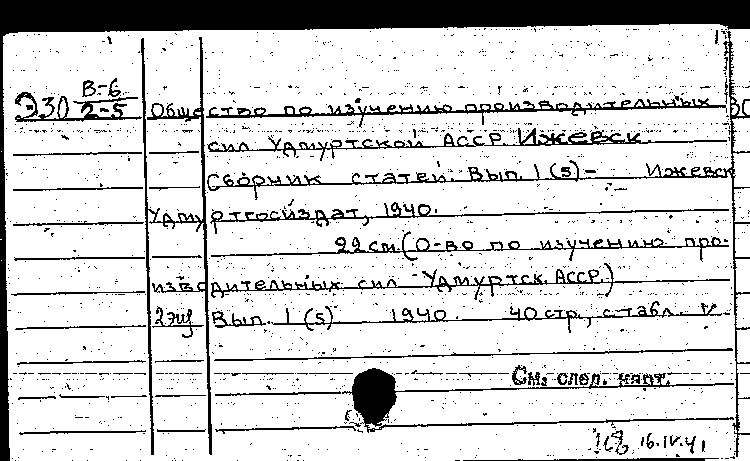 Э30 В-6/2-5 Общество по изучению производительных
сил Удмуртской АССР. Ижевск.
Сборник статей. Вып. 1 (5) – Ижевск
Удмуртгосиздат, 1940.
22 см. (О-во по изучению про-
изводительных сил Удмуртск. АССР.)
2 экз Вып. 1 (5) 1940. 40 стр., с табл.
См. след. карт.
16.IV.41